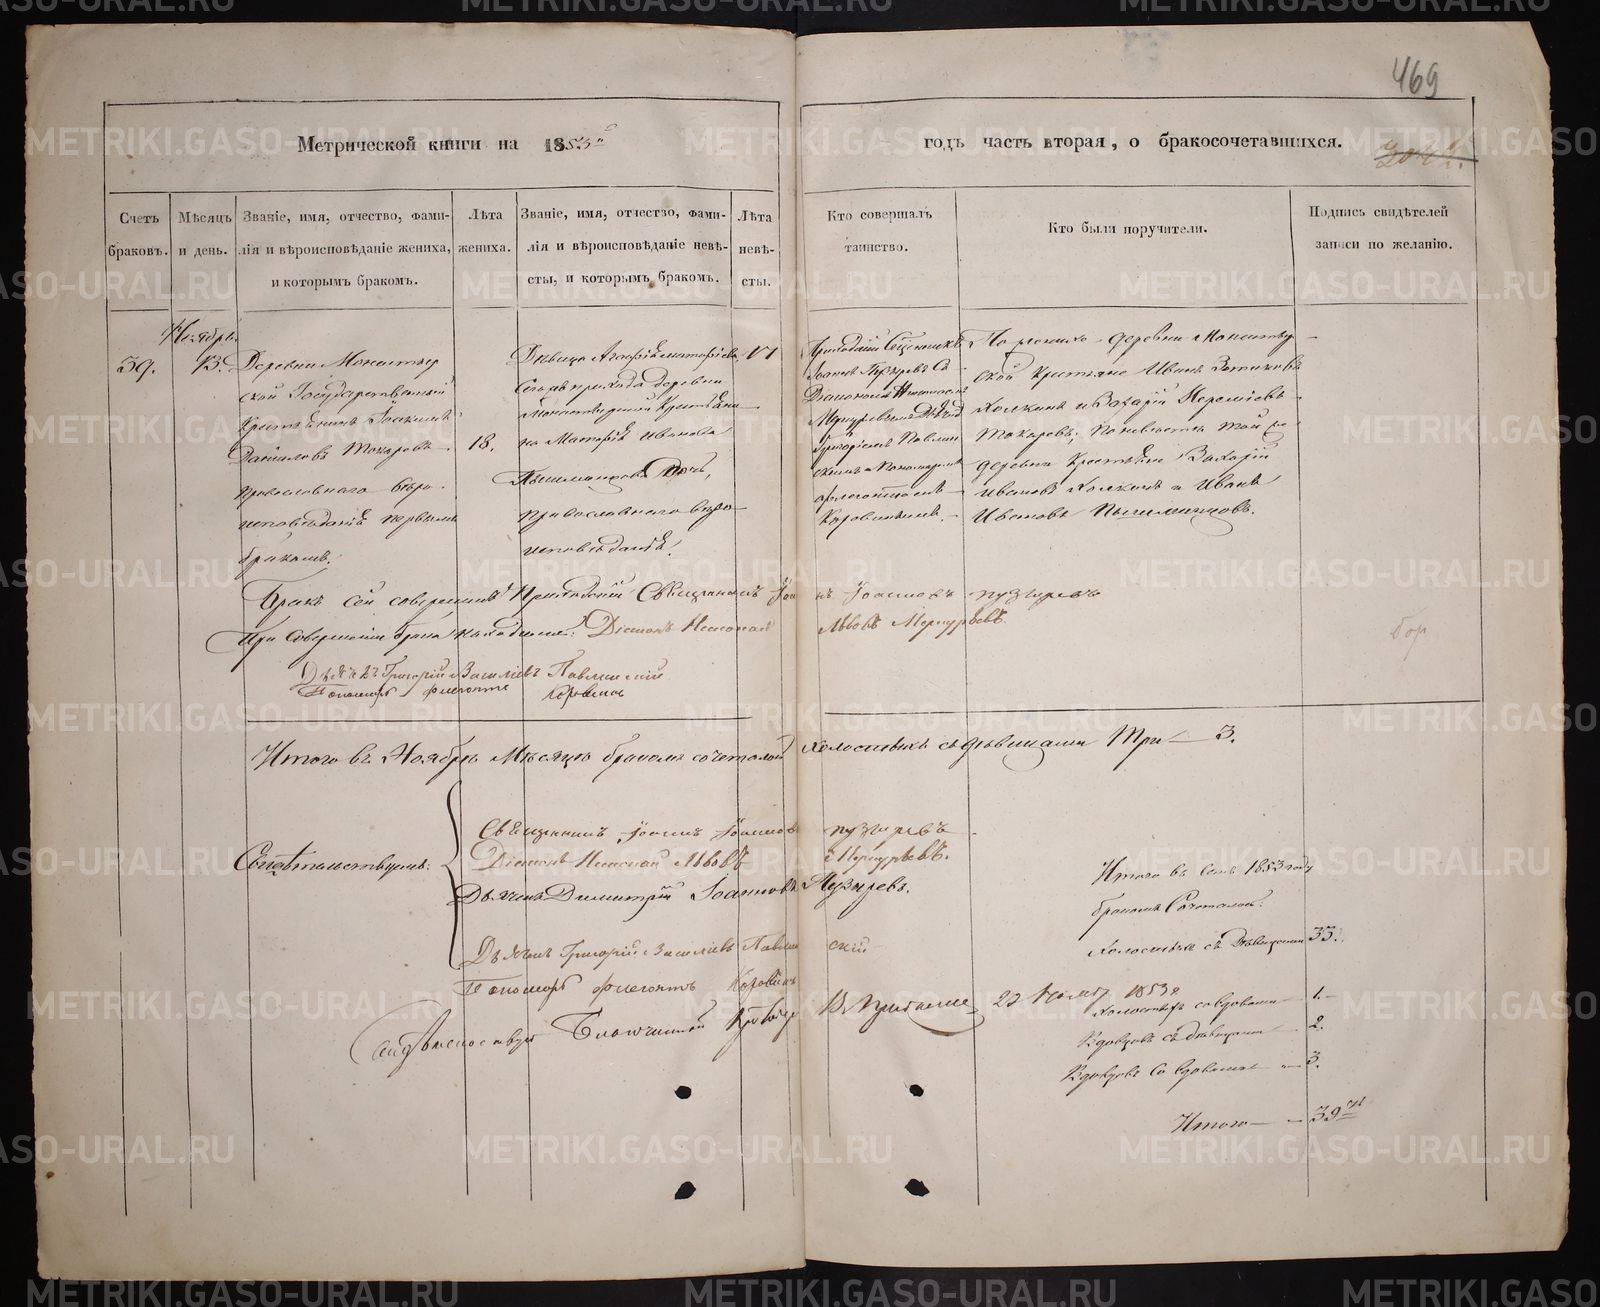 469
Метрической книги на 1853й
годъ часть вторая, о бракосочетавшихся.
Счетъ браковъ.
Мѣсяцъ и день.
Званіе, имя, отчество, фамилія и вѣроисповѣданіе жениха, и которымъ бракомъ.
Лѣта жениха.
Званіе, имя, отчество, фамилія и вѣроисповѣданіе невѣсты, и которымъ бракомъ.
Лѣта невѣсты.
Кто совершалъ таинство.
Кто были поручители.
Подпись свидѣтелей записи по желанію.
39.
Ноябрь
13.
Деревни Монастыр
ской Государственный
Крестьянинъ Іоакимъ
Данiиловъ Токаревъ
православнаго вѣро
исповѣданія первымъ
бракомъ.
18.
Дѣвица
прихода деревни
Крестьяни
на Иванова
дочь,
православнаго вѣро
исповѣданія.
17
Приходскій Священникъ
Іоаннъ Пузыревъ съ
Діакономъ
Меркурьевымъ Дьячк
Григоріемъ Павлин
скимъ и Пономаремъ
Флегонтомъ
Коровинымъ.
По женихѣ деревни Монастыр
ской Крестьяне Иванъ
Колкинъ и Захарій
Токаревъ; по невѣстѣ той же
деревни Крестьяне Захарій
Ивановъ Колкинъ и Иванъ
Ивановъ Пышминцовъ.
Бракъ сей совершалъ Приходскій Священникъ Іоаннъ Іоанновъ Пузыревъ
При совершеніи брака находился: Діаконъ Николай Львовъ Меркурьевъ.
Дьячекъ Григорій Васильевъ Павлинскій
Пономарь Флегонтъ Коровинъ
Итого въ Ноябрѣ мѣсяцѣ бракомъ сочеталось холостыхъ съ дѣвицами три — 3.
Свидѣтельствуемъ:
Священникъ Іоаннъ Іоанновъ Пузыревъ
Діаконъ Николай Львовъ Меркурьевъ.
Дьячекъ Димитрій Іоанновъ Пузыревъ.
Дьячекъ Григорій Васильевъ Павлинскій
Пономарь Флегонтъ Коровинъ
Благочинный
1853
Итого въ семъ 1853 году
бракомъ сочеталось:
Холостыхъ съ дѣвицами 33.
Холостыхъ со вдовами — 1.
Вдовцовъ съ дѣвицами — 2.
Вдовцовъ со вдовами — 3.
Итого — 39
METRIKI.GASO-URAL.RU